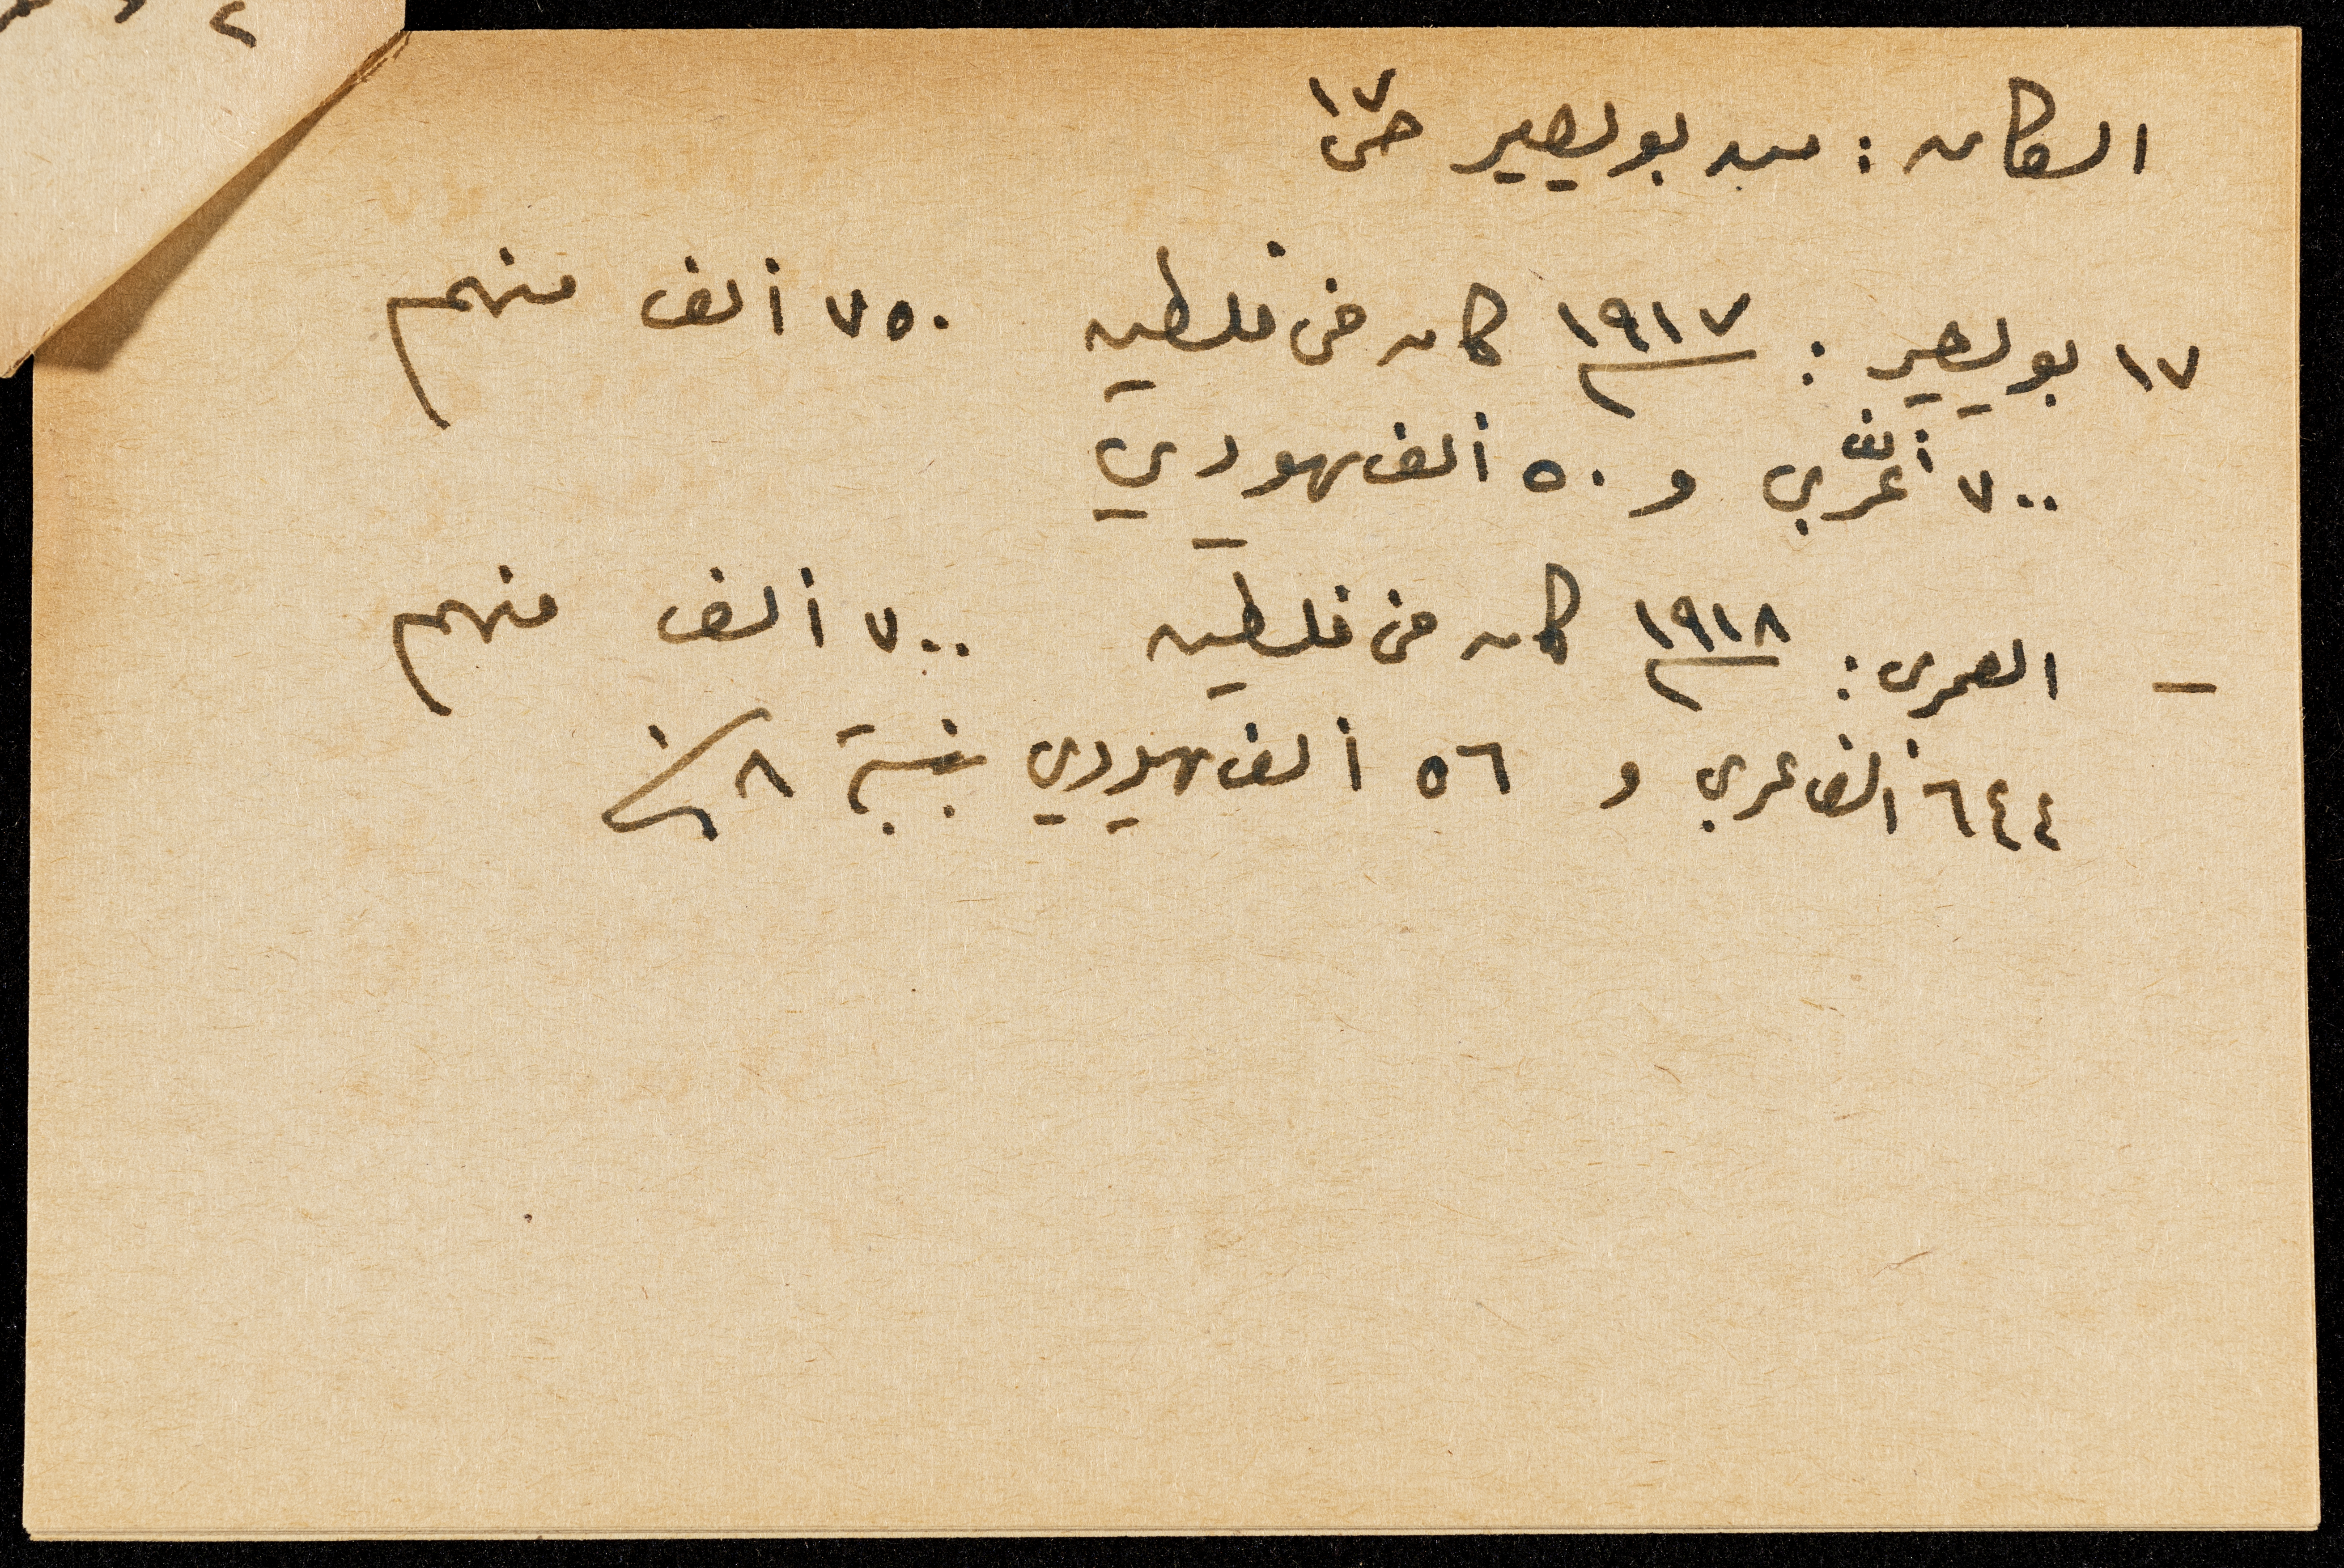 السكان : بويصير ص ١٧
١٧ بويصير : ١٩١٧ كان في فلسطين ٧٥٠ ألف منهم
٧٠٠ ألف عربي و ٥٠ ألف يهودي
– العمري : ١٩١٨ كان في فلسطين ٧٠٠ ألف منهم
٦٤٤ ألف عربي و ٥٦ ألف يهودي بنسبة ٨٪